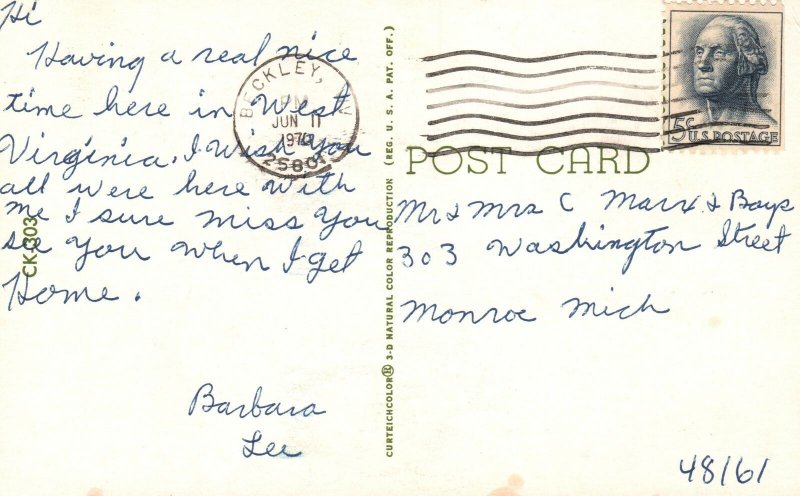 Hi
Having a real nice
time here in West
Virginia. I wish you
all were here with
me I sure miss you
see you when I get
Home.
Barbara
Lee
CK-303
BECKLEY,
PM
JUN 11
1970
25801
CURTEICHCOLOR® 3-D NATURAL COLOR REPRODUCTION (REG. U. S. A. PAT. OFF.)
5¢ U.S. POSTAGE
POST CARD
Mr & Mrs C Marx & Boys
303 Washington Street
Monroe Mich
48161